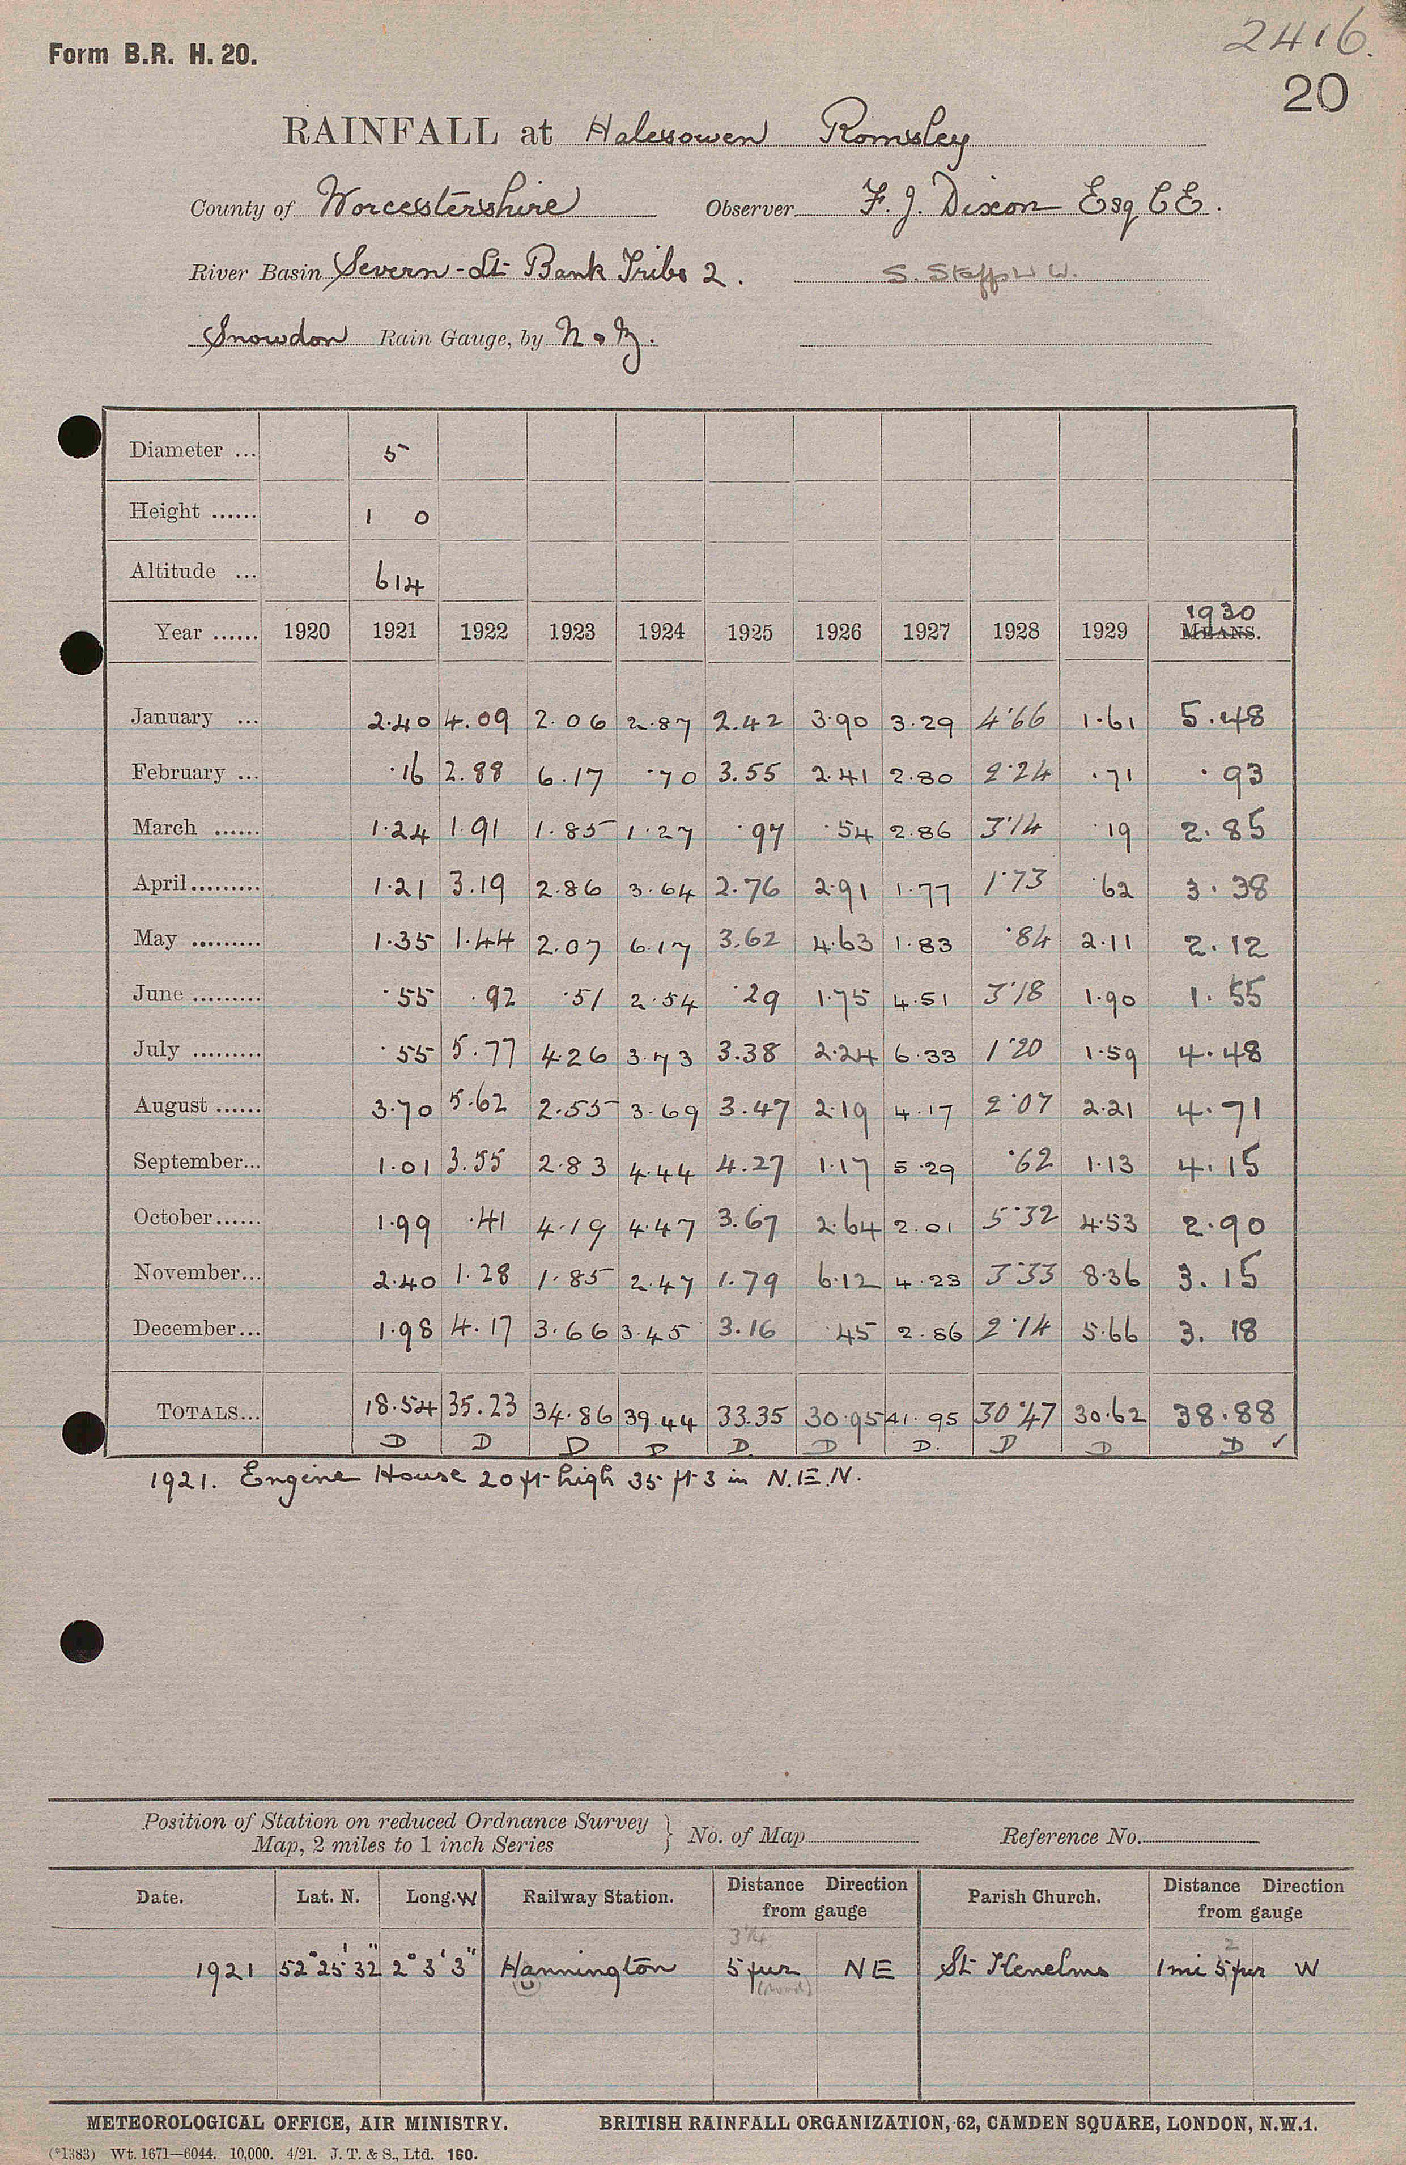 2416.
Form B.R. H. 20.
20
RAINFALL at Halesowen Romsley
County of Worcestershire Observer F. J. Dixon Esq C E.
River Basin Severn - Lt Bank Tribs 2. S. Staffs W W.
Snowdon Rain Gauge, by N & Z.
Diameter ... 5
Height ...... 1 0
Altitude ... 614
1930
Year ...... 1920 1921 1922 1923 1924 1925 1926 1927 1928 1929 MEANS.
January ... 2.40 4.09 2.06 2.87 2.42 3.90 3.29 4.66 1.61 5.48
February ... .16 2.88 6.17 .70 3.55 2.41 2.80 2.24 .71 .93
March ...... 1.24 1.91 1.85 1.27 .97 .54 2.86 3.14 .19 2.85
April......... 1.21 3.19 2.86 3.64 2.76 2.91 1.77 1.73 .62 3.38
May ......... 1.35 1.44 2.07 6.17 3.62 4.63 1.83 .84 2.11 2.12
June ......... .55 .92 .51 2.54 .29 1.75 4.51 3.18 1.90 1.55
July ......... .55 5.77 4.26 3.73 3.38 2.24 6.33 1.20 1.59 4.48
August ...... 3.70 5.62 2.55 3.69 3.47 2.19 4.17 2.07 2.21 4.71
September... 1.01 3.55 2.83 4.44 4.27 1.17 5.29 .62 1.13 4.15
October...... 1.99 .41 4.19 4.47 3.67 2.64 2.01 5.32 4.53 2.90
November... 2.40 1.28 1.85 2.47 1.79 6.12 4.23 3.33 8.36 3.15
December... 1.98 4.17 3.66 3.45 3.16 .45 2.86 2.14 5.66 3.18
TOTALS... 18.54 35.23 34.86 39.44 33.35 30.95 41.95 30.47 30.62 38.88
D D D D D. D D. D D D ✓
1921. Engine House 20 ft high 35 ft 3 in N.E.N.
Position of Station on reduced Ordnance Survey
Map, 2 miles to 1 inch Series } No. of Map Reference No.
Date. Lat. N. Long. W Railway Station. Distance Direction from gauge Parish Church. Distance Direction from gauge
3 1/4 2
1921 52° 25' 32" 2° 3' 3" Hannington 5 fur NE St Kenelms 1 mi 5 fur W
METEOROLOGICAL OFFICE, AIR MINISTRY. BRITISH RAINFALL ORGANIZATION, 62, CAMDEN SQUARE, LONDON, N.W.1.
(*1383) Wt. 1671—6044. 10,000. 4/21. J. T. & S., Ltd. 160.